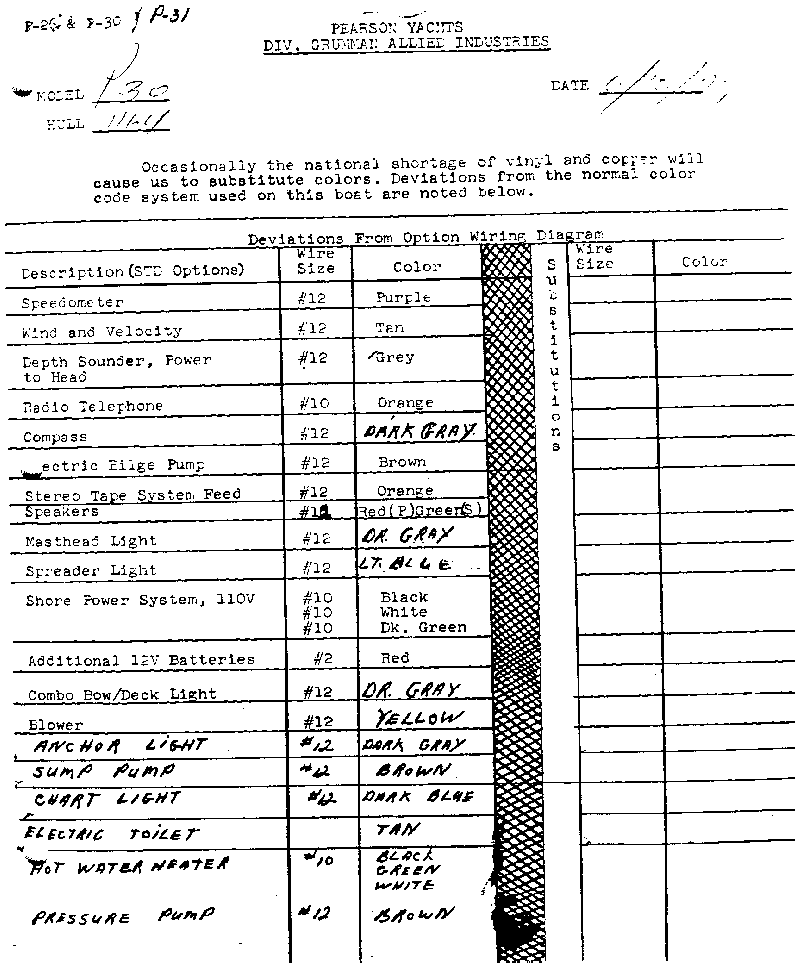 P-26 & P-30 / P-31
PEARSON YACHTS
DIV. GRUMMAN ALLIED INDUSTRIES
MODEL P-30
DATE
HULL 1164
Occasionally the national shortage of vinyl and copper will
cause us to substitute colors. Deviations from the normal color
code system used on this boat are noted below.
Deviations From Option Wiring Diagram
Description (STD Options) Wire Size Color Substitutions Wire Size Color
Speedometer #12 Purple
Wind and Velocity #12 Tan
Depth Sounder, Power #12 Grey
to Head
Radio Telephone #10 Orange
Compass #12 DARK GRAY
ectric Bilge Pump #12 Brown
Stereo Tape System Feed #12 Orange
Speakers Red(P)Green(S)
Masthead Light #12 DR. GRAY
Spreader Light #12 LT. BLUE
Shore Power System, 110V #10 Black
#10 White
#10 Dk. Green
Additional 12V Batteries #2 Red
Combo Bow/Deck Light #12 DR. GRAY
Blower #12 YELLOW
ANCHOR LIGHT #12 DARK GRAY
SUMP PUMP #12 BROWN
CHART LIGHT #12 DARK BLUE
ELECTRIC TOILET TAN
HOT WATER HEATER #10 BLACK
GREEN
WHITE
PRESSURE PUMP #12 BROWN